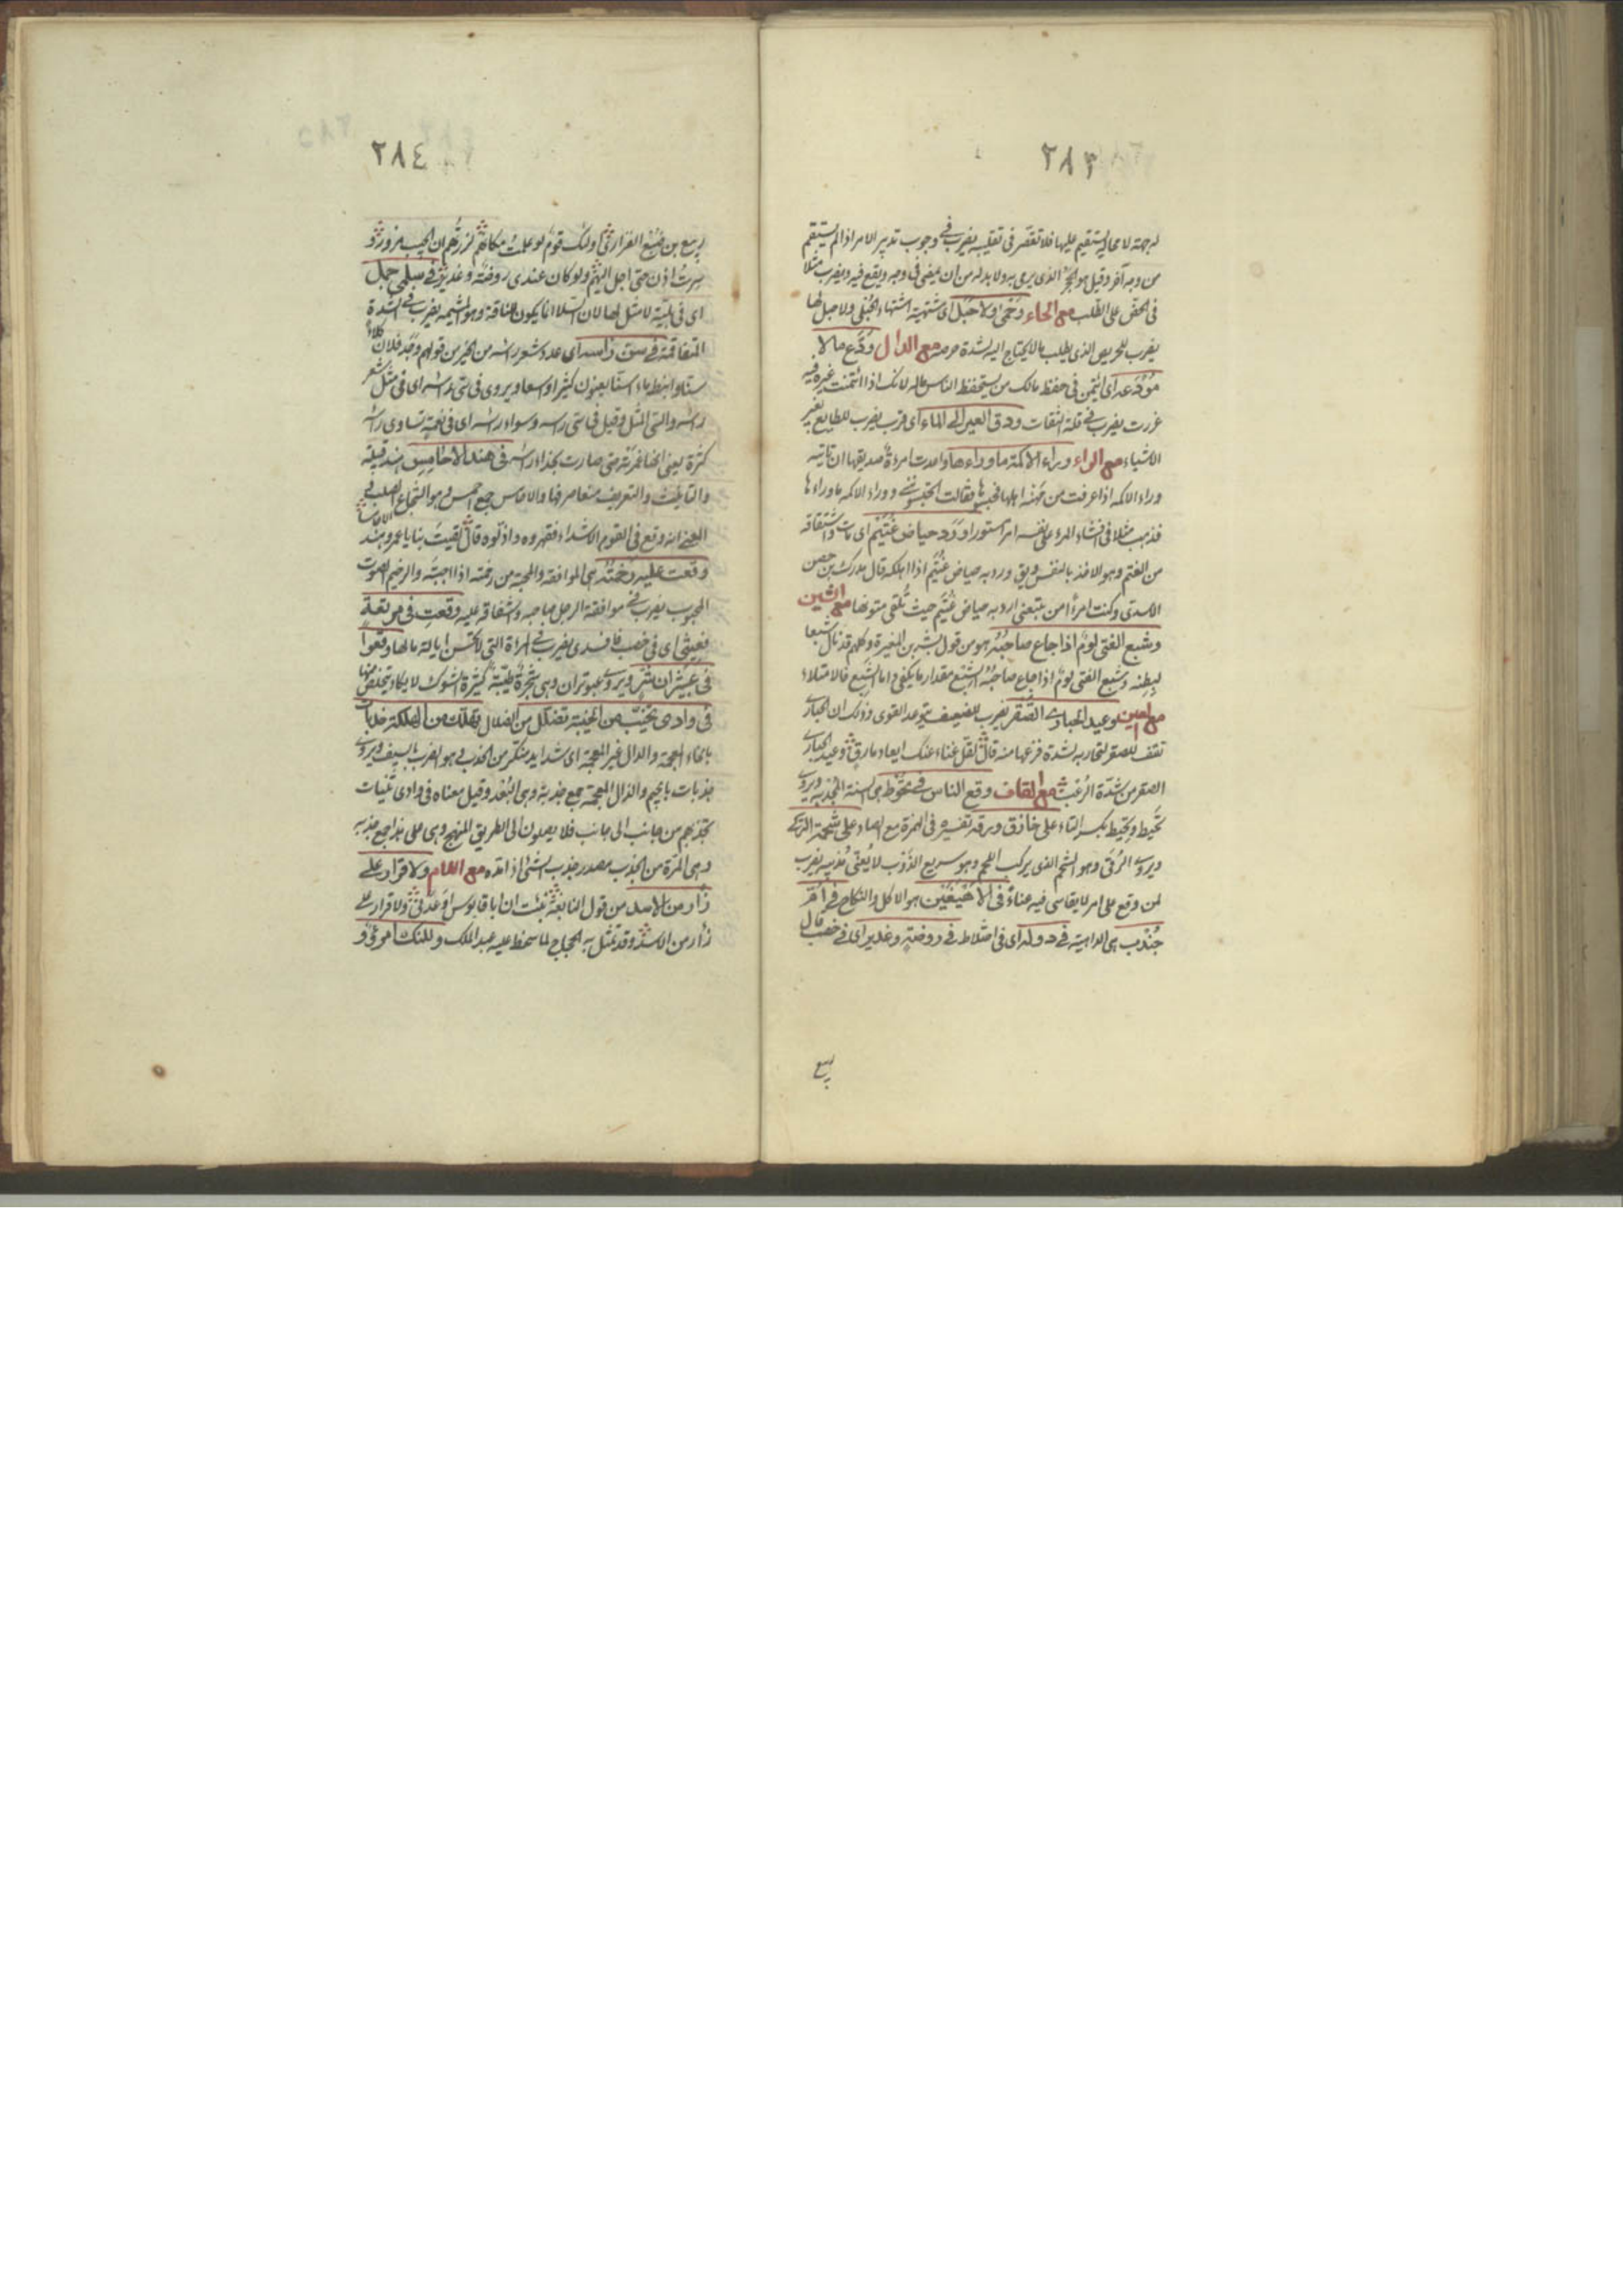 ٢٨٣
له جهة لا محالة يستقيم عليها فلا تقصر في تقليبه يضرب في وجوب تدبير الامر اذا لم يستقم
من وجه آخر وقيل هو الحجر الذي يرمى به ولا بد له من ان يمضي في وجه ويقع فيه ويضرب مثلا
في الحض على الطلب مع الحاء وحمى ولا حبل اي شهية اشتهاء الحبلى ولا حبل لها
يضرب للحريص الذي يطلب ما لا يحتاج اليه لشدة حرصه مع الدال ودع مالا
مودعه اي ائتمن في حفظ مالك من يستحفظ الناس ماله لانك اذا ائتمنت غيره فيه
غررت يضرب في قلة الثقات ودق العير الى الماء اي قرب يضرب للطايع بغير
الاشياء مع الراء وراء الاكمة ما وراءها واعدت امرءة صديقها ان تاتيه
وراء الاكمه اذا عرفت من مهنة اهلها فحبسوها فقالت احبستموني ووراء الاكمه ما وراءها
فذهب مثلا في افشاء المرء على نفسه امرا مستورا ورد حياض غتيم اي مات واشتقاقه
من الغتم وهو الاخذ بالنفس ويق ورد به حياض غتيم اذا اهلكه قال مدرك بن حصن
الاسدي وكنت امرأ من يتبعني ارد به حياض غتيم حيث تلقى متونها مع الشين
وشبع الفتى لوم اذا جاع صاحبه هو من قول بشر بن المغيرة وكلهم قد نال شبعا
لبطنه وشبع الفتى لوم اذا جاع صاحبه الشبع مقدار ما يكفي واما الشبع فالامتلاء
مع العين وعيد الحبارى الصقر يضرب للضعيف يتوعد القوى وذلك ان الحبارى
تقف للصقر لتحاربه لشدة فزعها منه قال اقل غناء عنك ايعاد بارق وعيد الحبارى
الصقر من شدة الرعب مع القاف وقع الناس في تحوط هي السنة المجدبة ويروى
تحيط وتحيط بكسر التاء على خازق ورقه تفسيره في الهمزة مع الصاد على شحمة الركى
ويروى الرقى وهو الشحم الذي يركب اللحم وهو سريع الذوب لا يعنى مذيبه يضرب
لمن وقع على امر لا يقاسى فيه عناء في الاهيغين هو الاكل والنكاح في ام
جندب هي الداهية في دولة اي في اختلاط في روضة وغدير اي في خصب قال
ربيع
٢٨٤
ربيع بن ضبع الفزاري اولئك قوم لو علمت مكانهم لزرتهم ان الحبيب مزور و
سرت اذن حتى احل اليهم ولو كان عندي روضة وغدير في سلى جمل
اي في بلية لا مثل لها لان السلا انما يكون للناقة وهو المشيمه يضرب في الشدة
المتفاقمة في سن راسه اي عدد شعر راسه من الخير من قولهم وجد فلان كلأ
راسه والسي المثل وقيل في سى راسه وسواء راسه اي في نعمة تساوى راسه
كثرة يعنى انها غمرته حتى صارت بحذاء راسه في هند الاحامس هند قبيلة
والتانيث والتعريف منعا صرفها والاحامس جمع احمس وهو الشجاع الصلب في
المعنى انه وقع في القوم الاشداء فقهروه واذلوه قال لقيت بنا يا عمرو هند الاحامسا
وقعت عليه رخمته هي الموافقة والمحبة من رخمته اذا احببته والرخيم الصوت
المحبوب يضرب في موافقة الرجل صاحبه واشفاقه عليه وقعت في مرتعة
فعيثى اي في خصب فافسدى يضرب في امراة التي لا تحسن ايالة مالها وقعوا
في عبيثران شر ويروى عبوثران وهي شجرة طيبة كثيرة الشوك لا يكاد يتخلص منها
في وادى تخيب من الخيبة تضلل من الضلال تهلك من الهلكة خدبات
بالخاء المعجمة والدال غير المعجمة اي شدايد منكرة من الخدب وهو الضرب بالسيف ويروى
جذبات بالجيم والذال المعجمة جمع جذبة وهي البعد وقيل معناه في وادى غيبات
تجذبهم من جانب الى جانب فلا يصلون الى الطريق المنهج وهي على هذا جمع جذبه
وهي المرة من الجذب مصدر جذب الشئ اذا مده مع اللام ولا قرار على
زأر من الاسد من قول النابغة نبئت ان ابا قابوس اوعدني ولا قرار على
زأر من الاسد وقد تمثل به الحجاج لما سخط عليه عبد الملك وللمنكث امرئ و